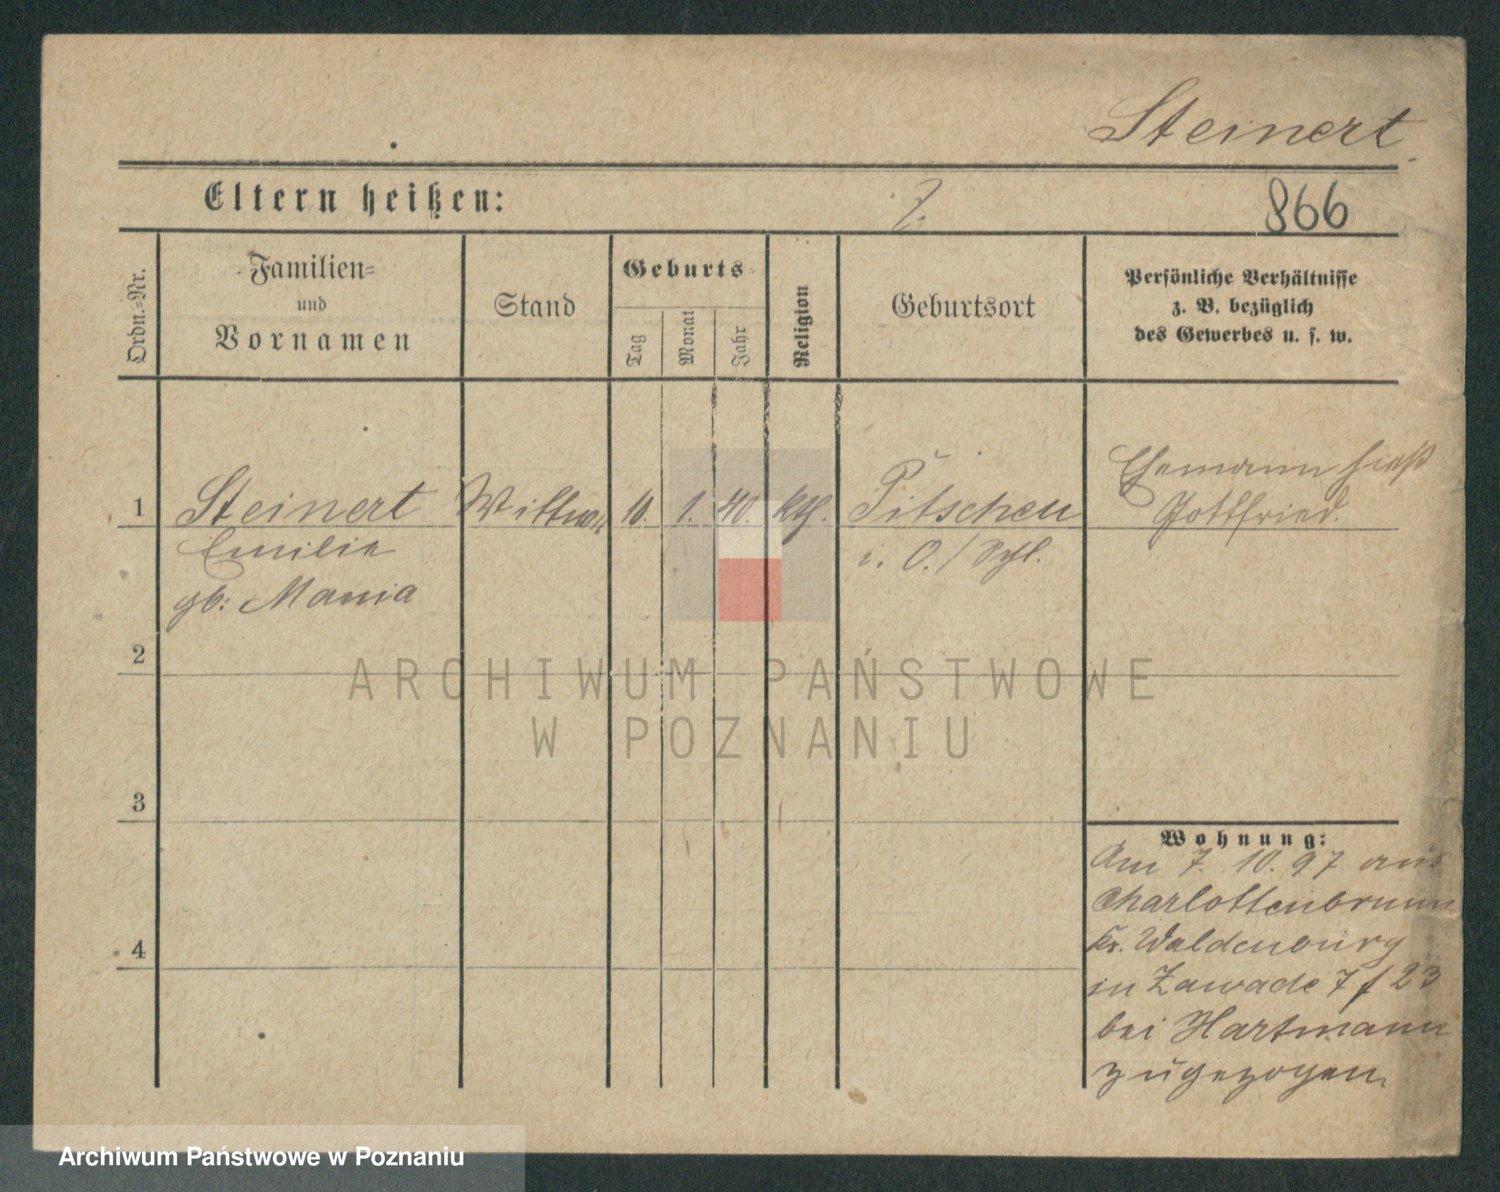 Steinert
Eltern heißen:
866
Ordn.-Nr.
Familien-
und
Vornamen
Stand
Geburts-
Tag
Monat
Jahr
Religion
Geburtsort
Persönliche Verhältnisse
z. B. bezüglich
des Gewerbes u. s. w.
1
Steinert
Emilie
gb: Mania
Wittwe
10.
1.
40.
kth.
Pitschen
i. O./Schl.
Ehemann hieß
Gottfried.
2
3
4
Wohnung:
Am 7. 10. 97 aus
Charlottenbrunn
Kr. Waldenburg
in Zawade 7 f 23
bei Hartmann
zugezogen.
ARCHIWUM PAŃSTWOWE
W POZNANIU
Archiwum Państwowe w Poznaniu